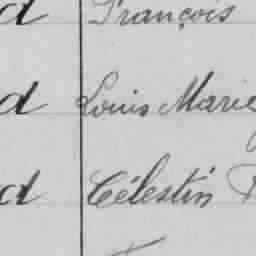 d François
d Louis Marie
d Célestin